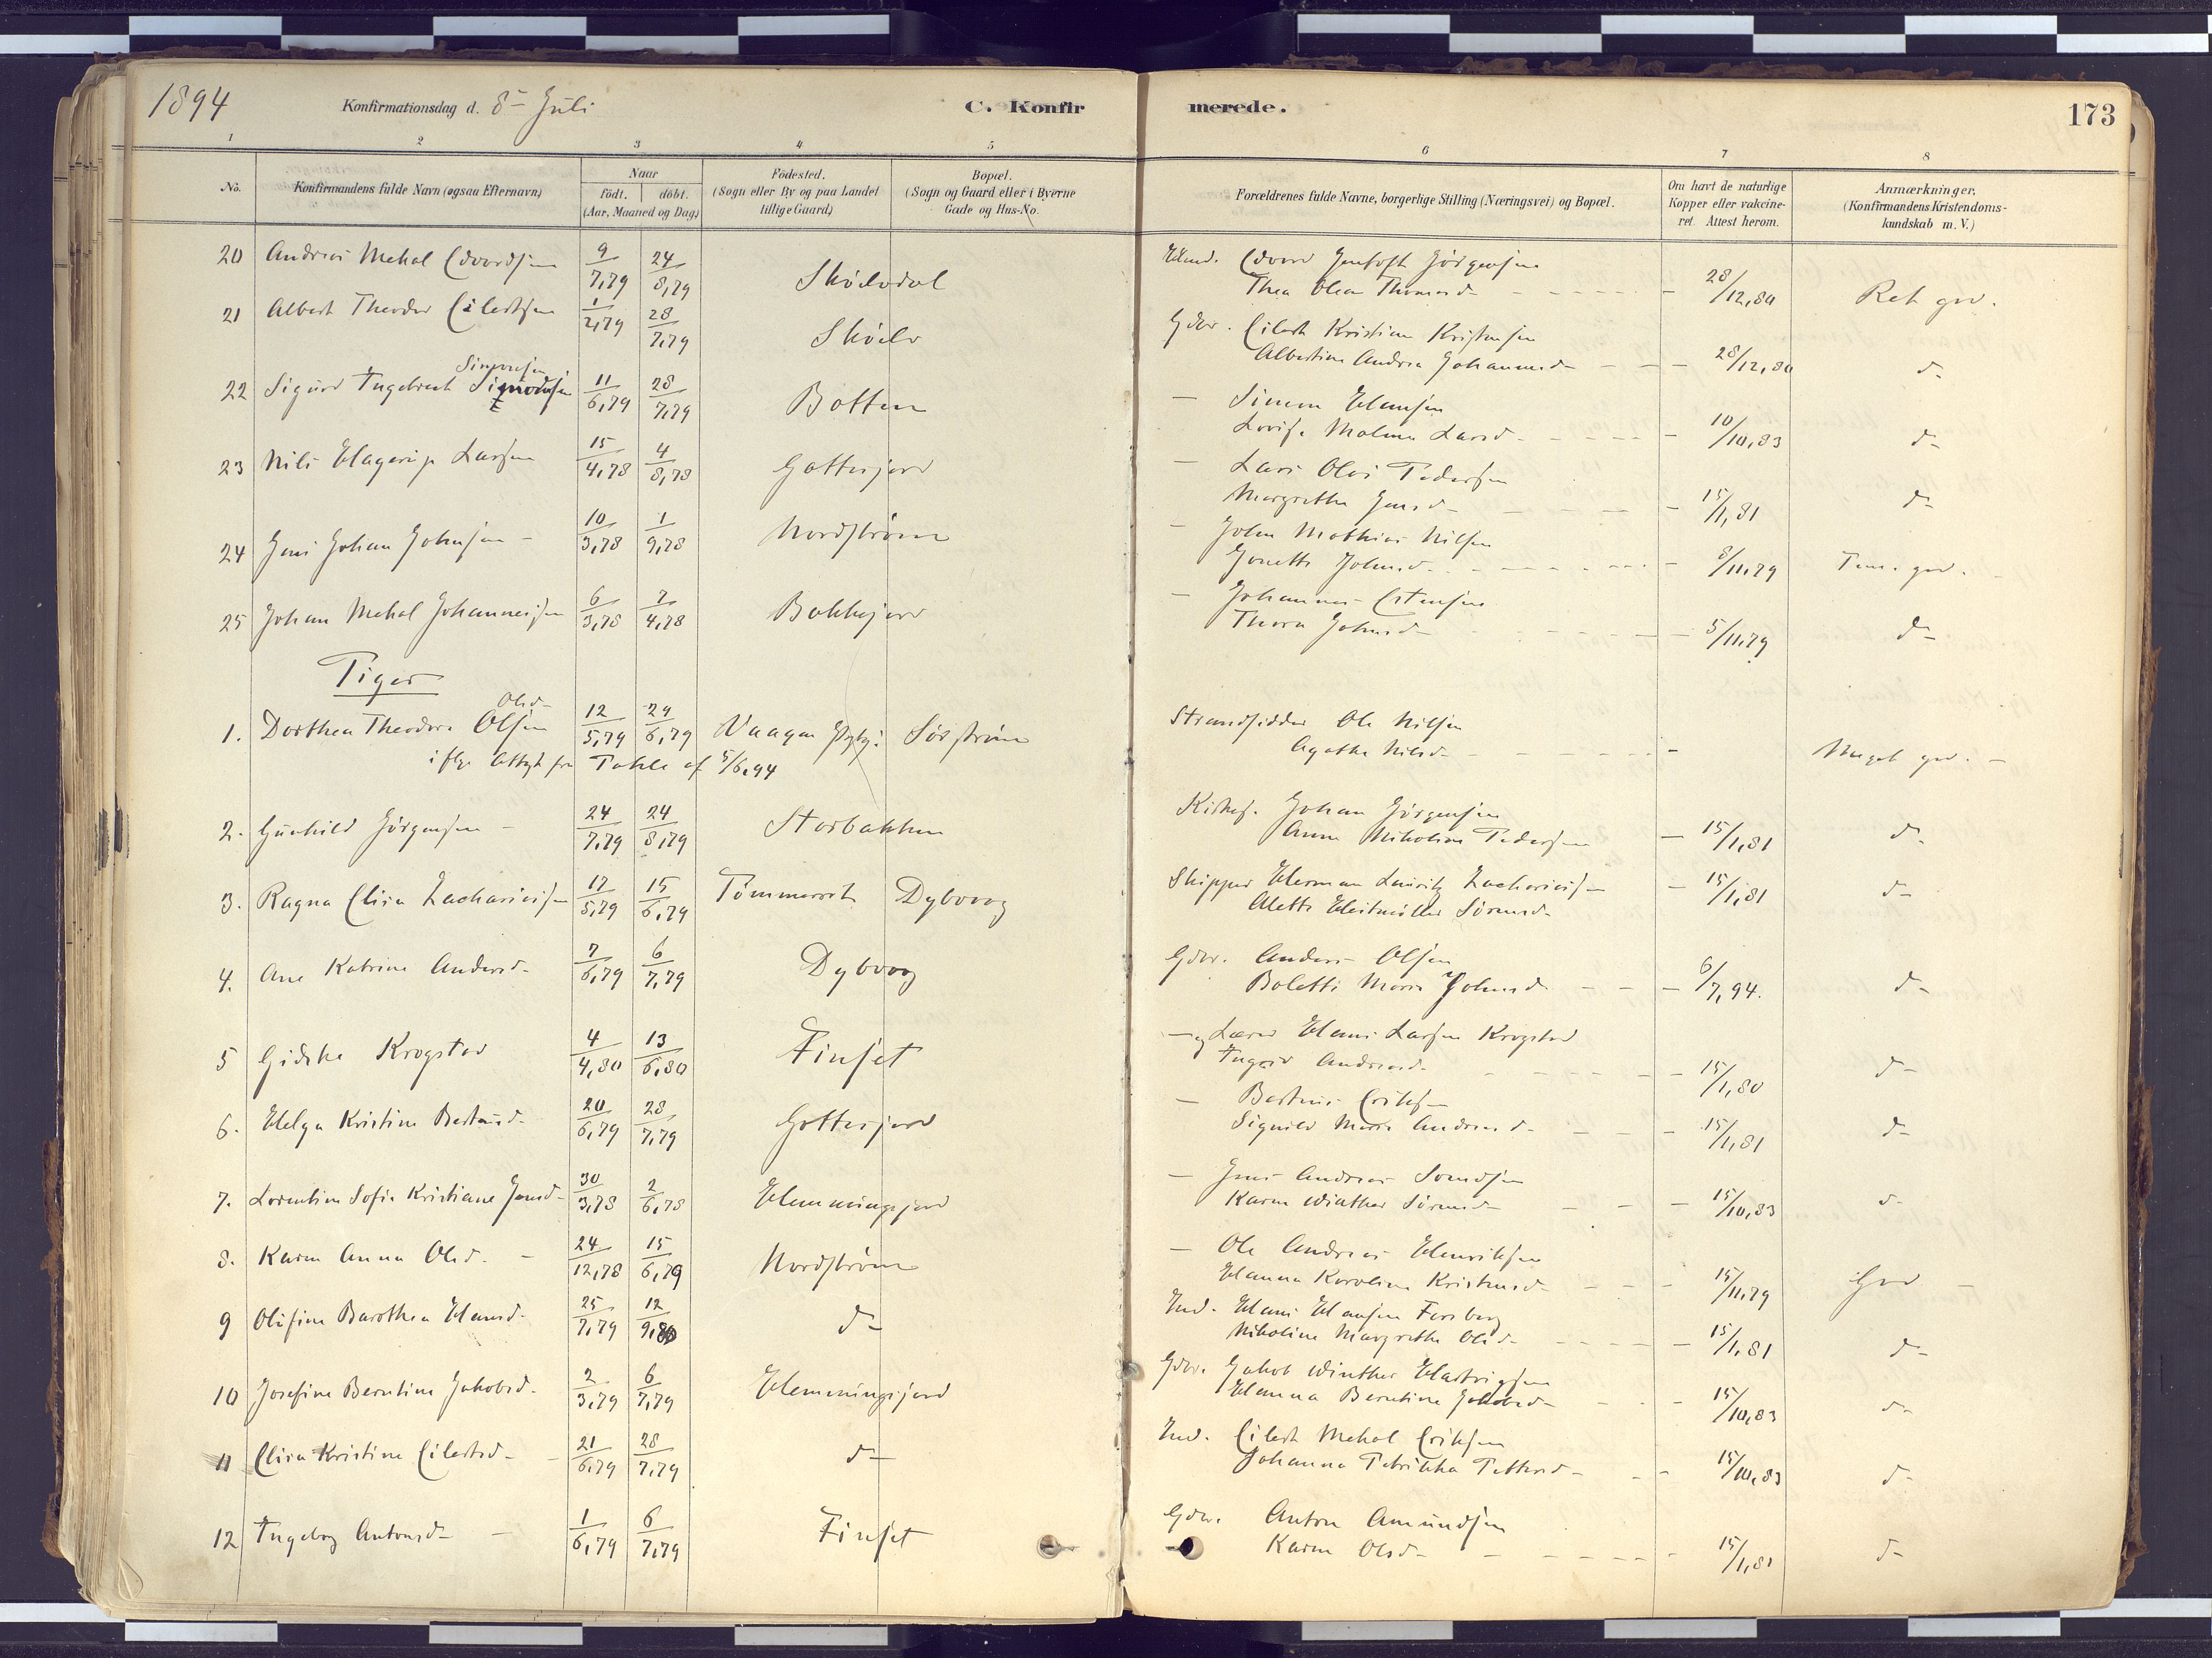 1894 Konfirmationsdag d. 8- Juli C. Konfirmerede. 173
1 2 3 4 5 6 7 8
No. Konfirmandens fulde Navn (ogsaa Efternavn) Naar født. døbt. (Aar, Maaned og Dag) Fødested. (Sogn eller By og paa Landet tillige Gaard) Bopæl. (Sogn og Gaard eller i Byerne Gade og Hus-No. Forældrenes fulde Navne, borgerlige Stilling (Næringsvei) og Bopæl. Om havt de naturlige Kopper eller vakcineret. Attest herom. Anmærkninger. (Konfirmandens Kristendomskundskab m. V.)
20 Andreas Mekal Edvardsen 9/7,79 24/8,79 Skøelvdal Edvard Jentoft Jørgensen
Thea Olea Thomasd- 28/12,80 Ret god.
21 Albert Theodor Eilertsen 1/2,79 28/7,79 Skøelv Gdbr. Eilert Kristian Kristensen
Albertine Andrea Johannesd- 28/12,80 d-
Simonsen
22 Sigurd Ingebrect 11/6,79 28/7,79 Botten - Simon Hansen
Lovise Malene Larsd- 10/10,83 d-
23 Nils Hagerup Larsen 15/4,78 4/8,78 Gottesjord - Lars Olai Pedersen
Margrethe Jensd- 15/1,81 d-
24 Jens Johan Johnsen - 10/3,78 1/9,78 Nordstrøm - John Mathias Nilsen
Jonette Johnsd- 8/11,79 Tem. god.
25 Johan Mekal Johannesen 6/3,78 7/4,78 Bakkejord - Johannes Estensen
Thora Johnsd- 5/11,79 d-
Piger
Olsd-
1. Dorthea Theodora Olsen 12/5,79 29/6,79 Vaagan Sørstrøm Strandsidder Ole Nilsen
Agathe Nilsd- Meget god. -
iflg. Attest fra af 5/6,94
2. Gunhild Jørgensen - 24/7,79 24/8,79 Storbakken Kirkes. Johan Jørgensen
Anna Nikoline Pedersen - 15/1,81 d-
3. Ragna Elisa Zachariasen 17/5,79 15/6,79 Tømmervik Dybvaag Skipper Herman Lauritz Zachariasen - 15/1,81 d-
Alette Heitmøller Sørensd-
4. Ane Katrine Andersd- 7/6,79 6/7,79 Dybvaag Gdbr. Anders Olsen
Bolette Maria Johnsd- 6/7,94. d-
5 Gidske Krogstad 4/4,80 13/6,80 Finset - og Lærer Hans Larsen Krogstad
Ingeir Andreasd- 15/1,80 d-
6. Helga Kristine Berteusd- 20/6,79 28/7,79 Gottesjord - Berteus Eriksen
Signild Marie Andreasd- 15/1,81 d-
7. Lorentine Sofie Kristiane Jensd- 30/3,78 2/6,78 Hemmingsjord - Jens Andreas
Karen Winther Sørensd- 15/10,83 d-
8. Karen Anna Olsd. - 24/12,78 15/6,79 Nordstrøm - Ole Andreas Henriksen
Hanna Karoline Kristensd- 15/11,79 God -
9 Olufine Barothea Hansd- 25/7,79 12/9,80 d- Ind. Hans Hansen Forsberg
Nikoline Margrethe Olsd- 15/1,81 d-
10 Josefine Berntine Jakobsd- 2/3,79 6/7,79 Hemmingsjord Gdbr. Jakob Winther Hartvigsen
Hanna Berntine Jakobsd- 15/10,83 d-
11 Elisa Kristine Eilertsd- 21/6,79 28/7,79 d- Ind. Eilert Mekal Eriksen
Johanna Petrikka Pettersd- 15/10,83 d-
12 Ingeborg Antonsd- 1/6,79 6/7,79 Finset Gdbr. Anton Amundsen
Karen Olsd- 15/1,81 d-